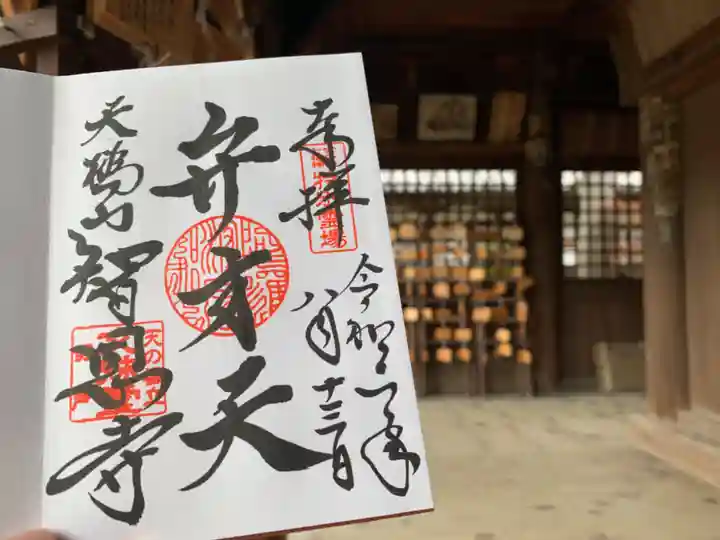 奉拝
令和二年
八月十三日
弁才天
天橋山
智恩寺